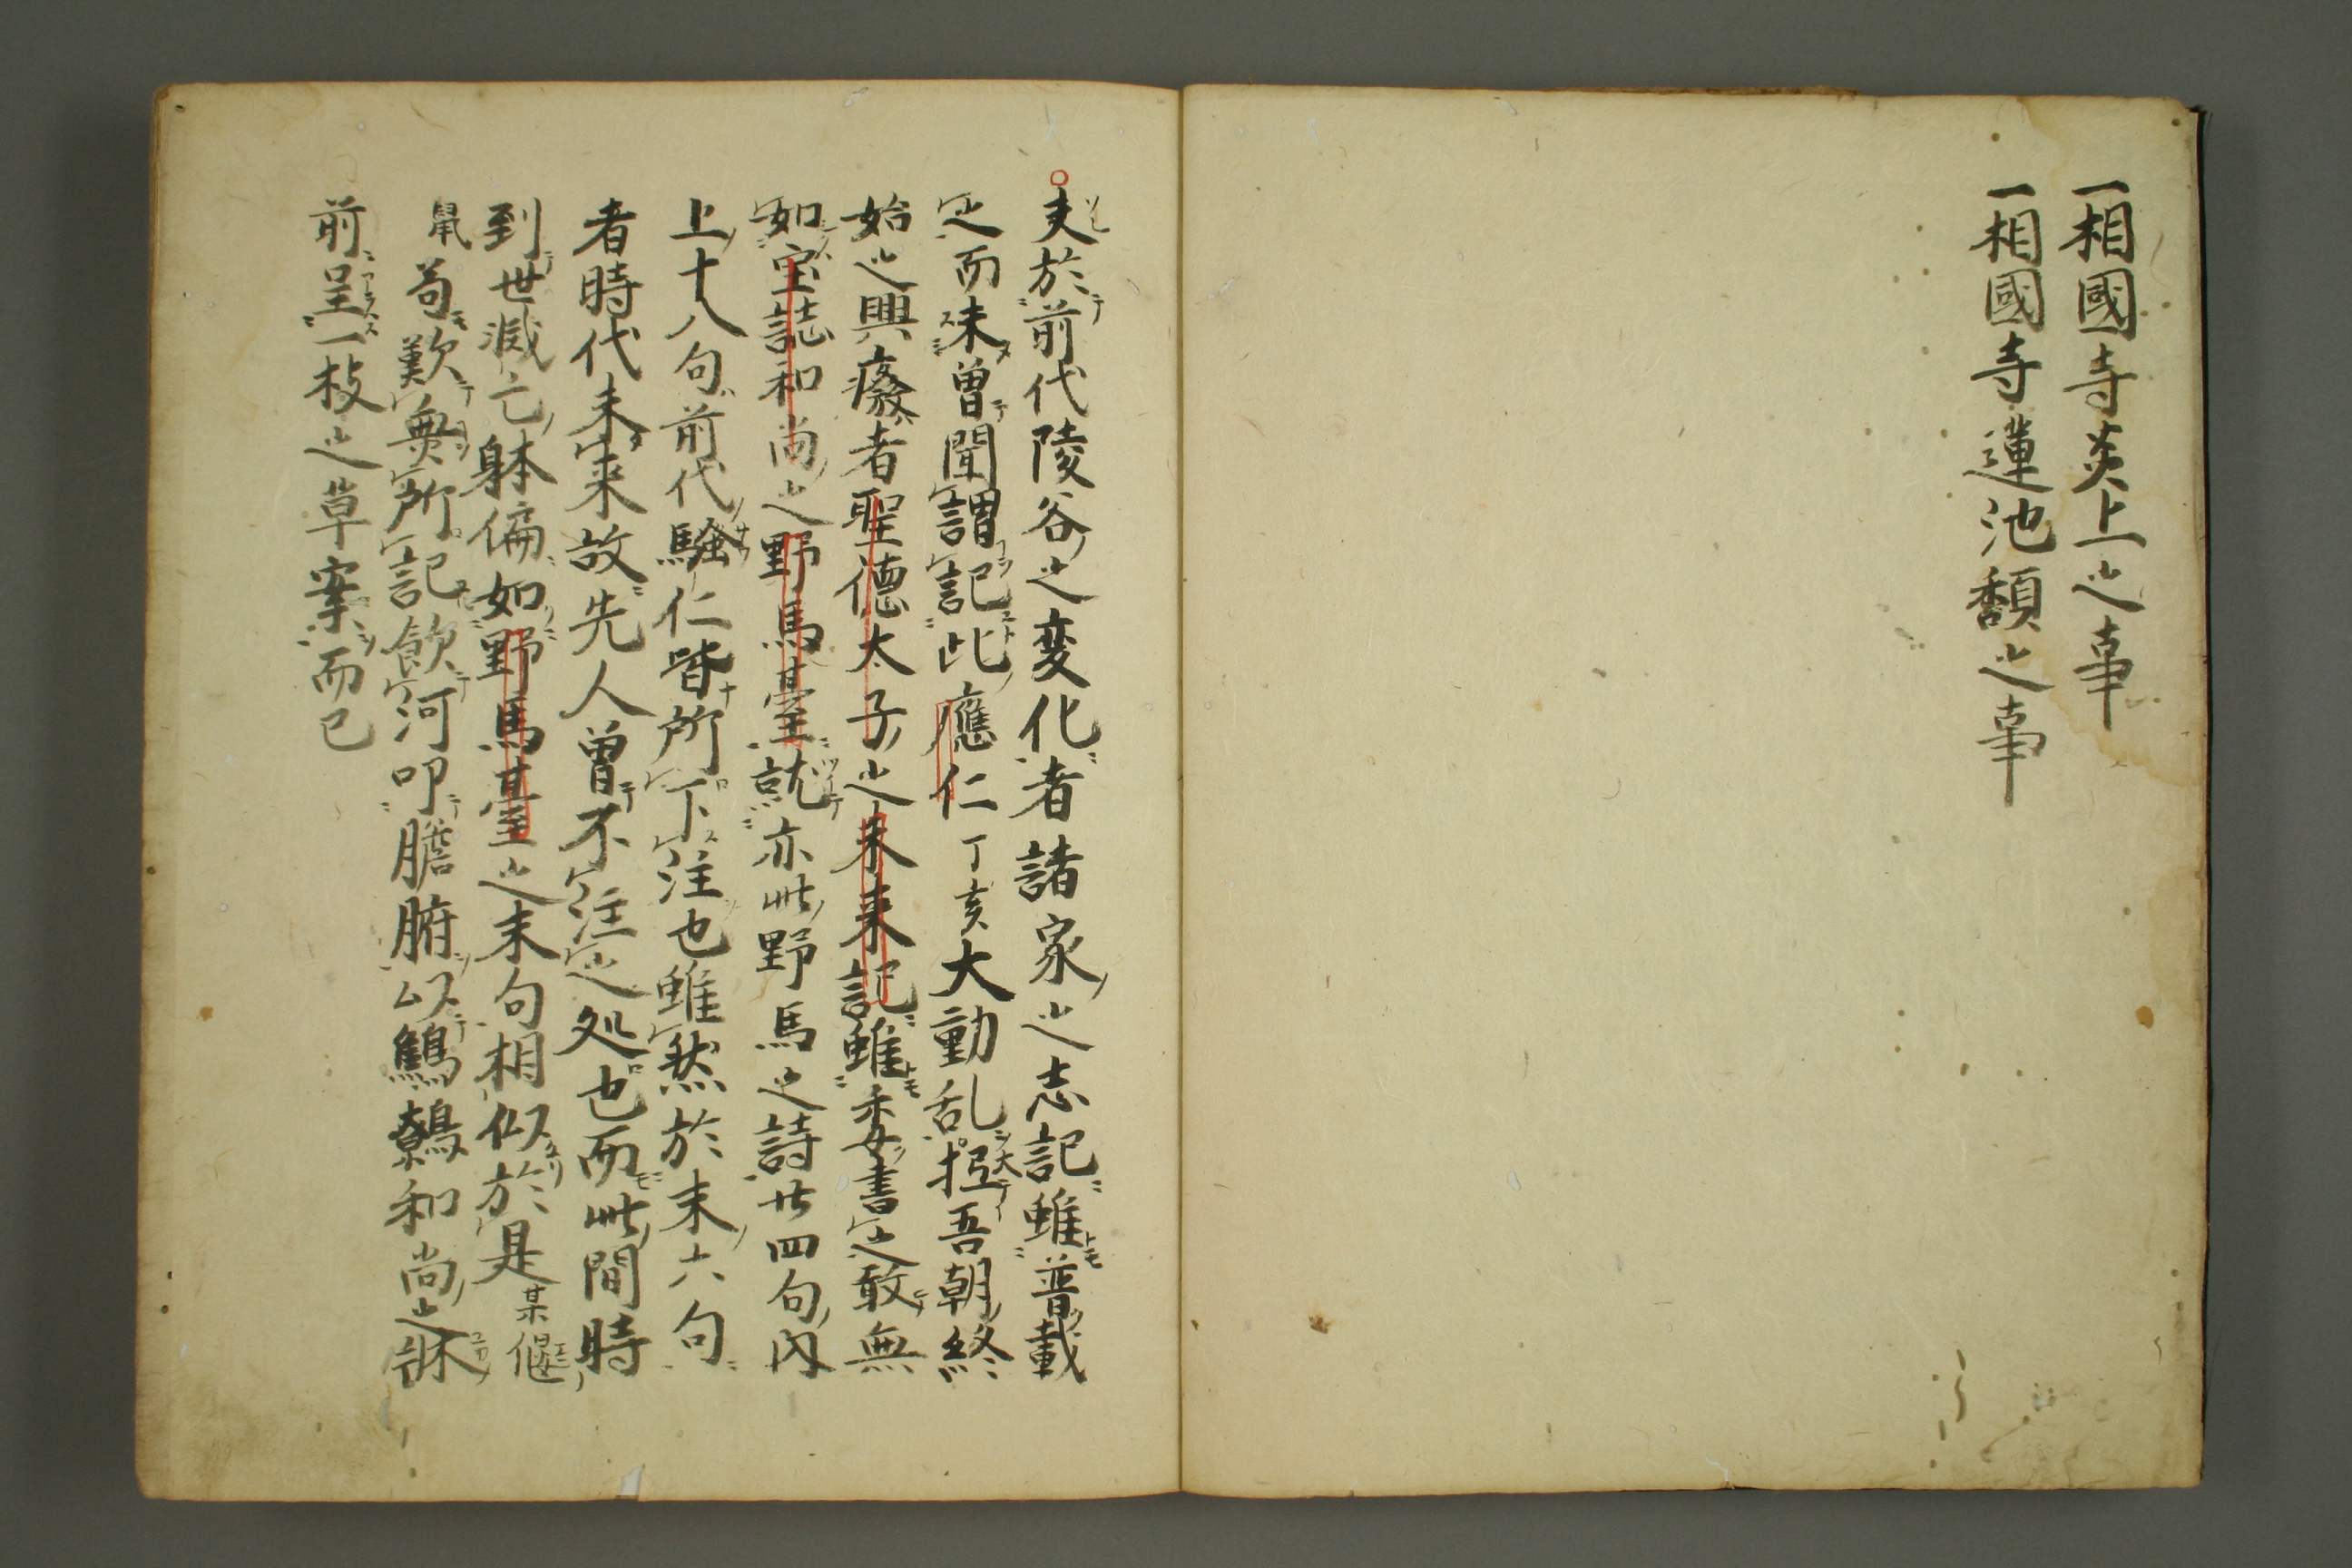 一相國寺炎上之事
一相國寺蓮池頽之事
夫於前代陵谷之変化者諸家之志記雖普載
之而未曽聞謂記此應仁丁亥大動乱抂吾朝終
始之興癈者聖德太子之未来記雖委書之敢無
如宝誌和尚之野馬臺就亦此野馬之詩廿四句内
上十八句前代騒仁皆所下注也雖然於末六句
者時代未来故先人曽不注之処也而此間時
到世滅亡躰偏如野馬臺之末句相似於是某偃
鼠苟歎無所記飲河叩膽腑以鷦鷯和尚之
前呈一枝之草案而已